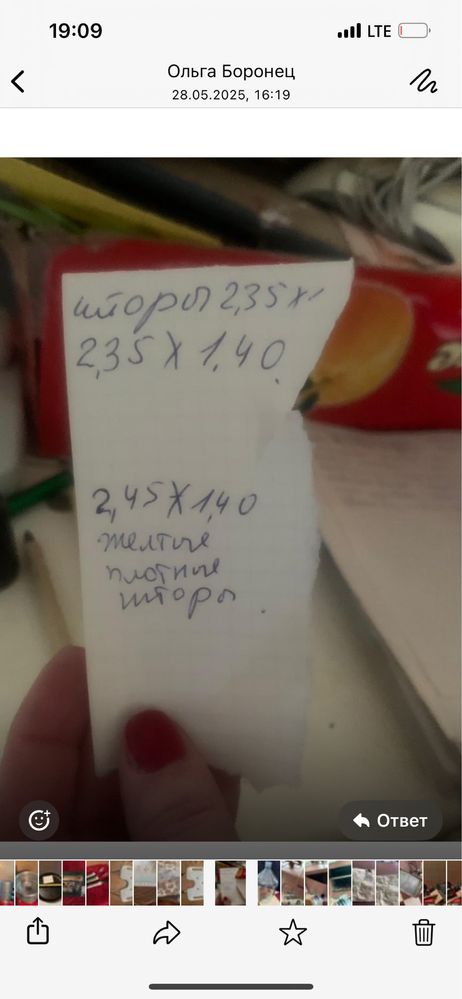 19:09
LTE
Ольга Боронец
28.05.2025, 16:19
шторы 2,35 х
2,35 х 1,40
2,45 х 1,40
желтые
плотные
шторы
Ответ